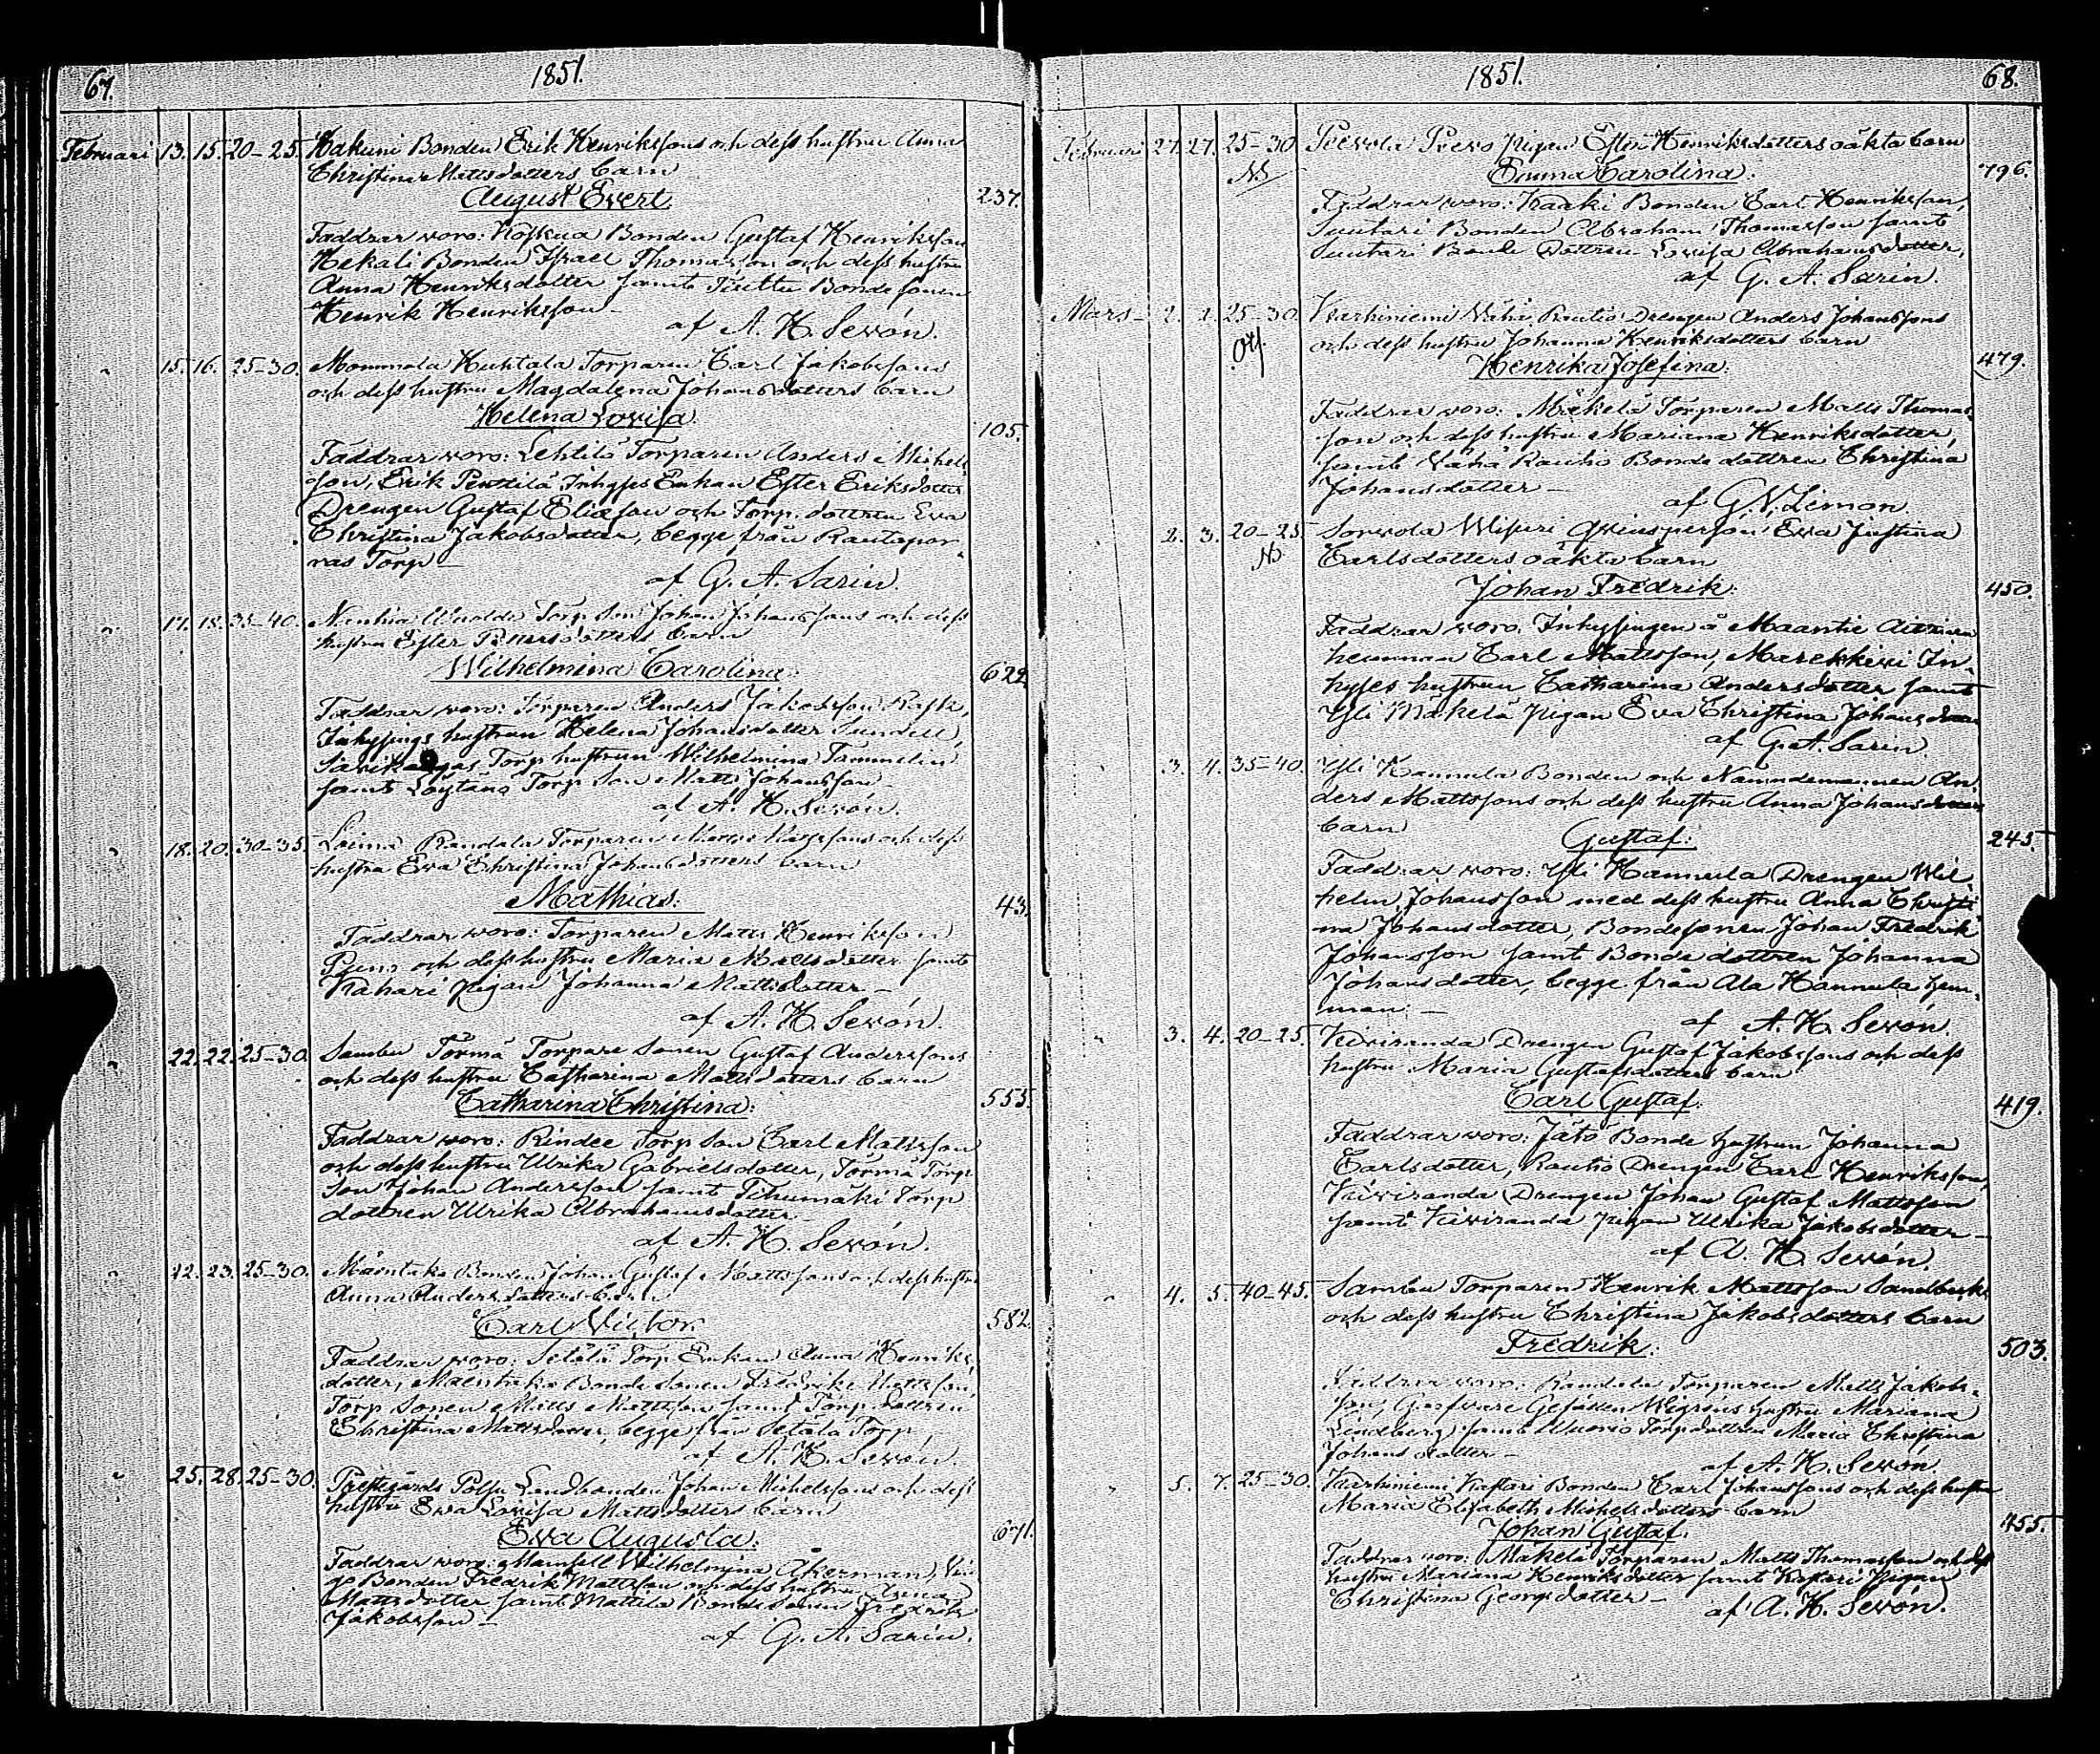 67.
1851.
Februari 13. 15. 20-25. Hakuni Bonden Erik Henrikssons och dess hustru Anna
Christina Mattsdotters barn
August Evert. 237.
Faddrar woro: Bonden Gustaf Henriksson
Hekali Bonden Israel Thomasson och dess hustru
Anna Henriksdotter samt Bondesonen
Henrik Henriksson –
af A. H. Sevón.
" 15. 16. 25-30. Mommola Huhtala Torparen Carl Jakobssons
och dess hustru Magdalena Johansdotters barn
Helena Lovisa. 105.
Faddrar woro: Lehtilä Torparen Anders Michels
son, Erik Penttilä Inhyses Enkan Ester Eriksdotter
Drengen Gustaf Eliæson och Torp. dottren Eva
Christina Jakobsdotter, begge från Rautapor
ras Torp –
af G. A. Sarin.
" 17. 18. 35-40. Torp Son Johan Johanssons och dess
hustru Ester dotters barn
Wilhelmina Carolina: 622.
Faddrar woro: Torparen Anders Jakobsson Rask,
Inhysings hustrun Helena Johansdotter Sundell,
Torp hustrun Wilhelmina Tammelin
samt Löytänä Torp Son Matts Johansson –
af A. H. Sevón.
" 18. 20. 30-35. Loima Randala Torparen och dess
hustru Eva Christina Johansdotters barn
Mathias: 43.
Faddrar woro: Torparen Matts Henriksson
och dess hustru Maria Mattsdotter samt
Kahari pigan Johanna Mattsdotter –
af A. H. Sevón.
" 22. 22. 25-30. Sambu Törmä Torpare Sonen Gustaf Anderssons
och dess hustru Catharina Mattsdotters barn
Catharina Christina: 555.
Faddrar woro: Rindee Torp Son Carl Mattsson
och dess hustru Ulrika Gabrielsdotter, Törmä Torp
Son Johan Andersson samt Tihumäki Torp
dottren Ulrika Abrahamsdotter –
af A. H. Sevón.
" 22. 23. 25-30. Mäentaka Bonden Johan Gustaf Mattssons och dess hustru
Anna Andersdotters barn
Carl Victor. 582.
Faddrar woro: Setälä Torp Enkan Anna Henriks
dotter, Mäentaka Bonde Sonen Fredrik Mattsson,
Torp Sonen Matts Mattsson samt Torp dottren
Christina Mattsdotter, begge från Setälä Torp,
af A. H. Sevón.
" 25. 28. 25-30. Prestgårds Landbonden Johan Michelssons och dess
hustru Eva Lovisa Mattsdotters barn
Eva Augusta: 671.
Faddrar woro: Mamsell Wilhelmina Åkerman,
Bonden Fredrik Mattsson och dess hustru Anna
Mattsdotter samt Mattila Bondesonen Fredrik
Jakobsson –
af G. A. Sarin.
1851.
68.
Februari 27. 27. 25-30 pigan Ester Henriksdotters oäkta barn
Emma Carolina: 796.
Faddrar woro: Bonden Carl Henriksson,
Suutari Bonden Abraham Thomasson samt
Suutari Bonde Dottren Lovisa Abrahamsdotter,
af G. A. Sarin.
Mars – 2. 25-30. Karhiniemi Vähä Rautio Drengen Anders Johanssons
och dess hustru Johanna Henriksdotters barn
Henrika Josefina. 479.
Faddrar woro: Mäkelä Torparen Matts Thomas
son och dess hustru Mariana Henriksdotter,
samt Vähä Rautio Bonde dottren Christina
Johansdotter –
af G. V. Limon.
2. 3. 20-25. Sorvola Wisuri Qvinsperson Eva Justina
Carlsdotters oäkta barn
Johan Fredrik: 450.
Faddrar woro: Inhysingen å Maantie
hemman Carl Mattsson, In
hyses hustrun Catharina Andersdotter samt
Yli Mäkelä pigan Eva Christina Johansdotter
af G. A. Sarin
3. 4. 35-40. Yli Hannula Bonden och Nämndemannen An
ders Mattssons och dess hustru Anna Johansdotters
barn
Gustaf: 245.
Faddrar woro: Yli Hannula Drengen Wil
helm Johansson med dess hustru Anna Christi
na Johansdotter, Bondesonen Johan Fredrik
Johansson samt Bonde dottren Johanna
Johansdotter, begge från Ala Hannula hem
man. –
af A. H. Sevón.
" 3. 4. 20-25. Kiviranda Drengen Gustaf Jakobssons och dess
hustru Maria Gustafsdotters barn
Carl Gustaf. 419.
Faddrar woro: Jätö Bonde hustrun Johanna
Carlsdotter, Rautio Drengen Carl Henriksson,
Kiviranda Drengen Johan Gustaf Mattsson
samt Kiviranda pigan Ulrika Jakobsdotter –
af A. H. Sevón.
" 4. 5. 40-45. Sambu Torparen Henrik Mattsson
och dess hustru Christina Jakobsdotters barn
Fredrik: 503.
Faddrar woro: Randala Torparen Matts Jakobs
son, Garfvare Gesällen hustru Mariana
Lindberg samt Torpdottren Maria Christina
Johansdotter –
af A. H. Sevón
" 5. 7. 25-30. Karhiniemi Bonden Carl Johanssons och dess hustru
Maria Elisabeth Michelsdotters barn
Johan Gustaf. 455.
Faddrar woro: Mäkelä Torparen Matts Thomasson och dess
hustru Mariana Henriksdotter samt pigan
Christina Georgsdotter –
af A. H. Sevón.